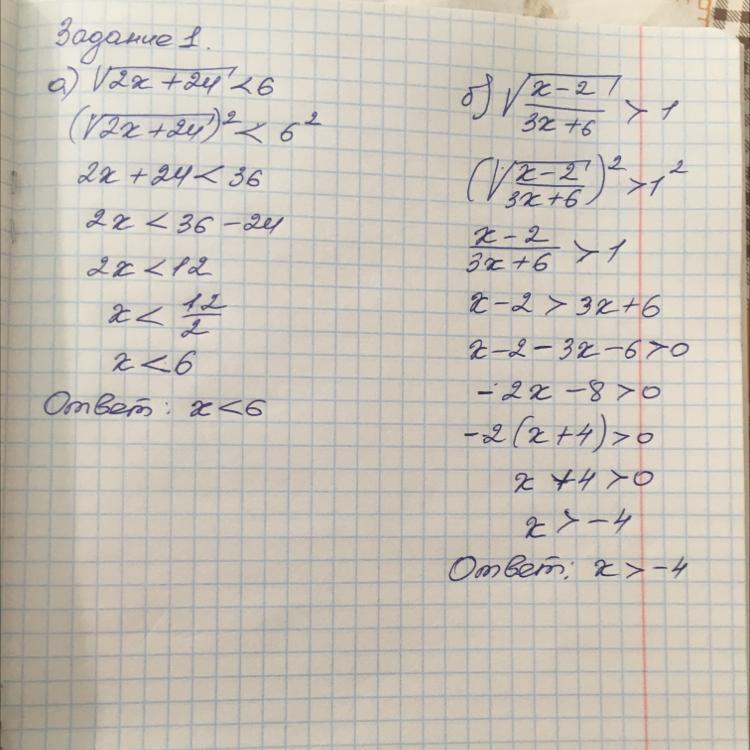 Задание 1.
а) √(2x+24) < 6
(√(2x+24))² < 6²
2x + 24 < 36
2x < 36 - 24
2x < 12
x < 12/2
x < 6
Ответ: x < 6
б) √((x-2)/(3x+6)) > 1
(√((x-2)/(3x+6)))² > 1²
(x-2)/(3x+6) > 1
x - 2 > 3x + 6
x - 2 - 3x - 6 > 0
-2x - 8 > 0
-2(x + 4) > 0
x + 4 > 0
x > -4
Ответ: x > -4